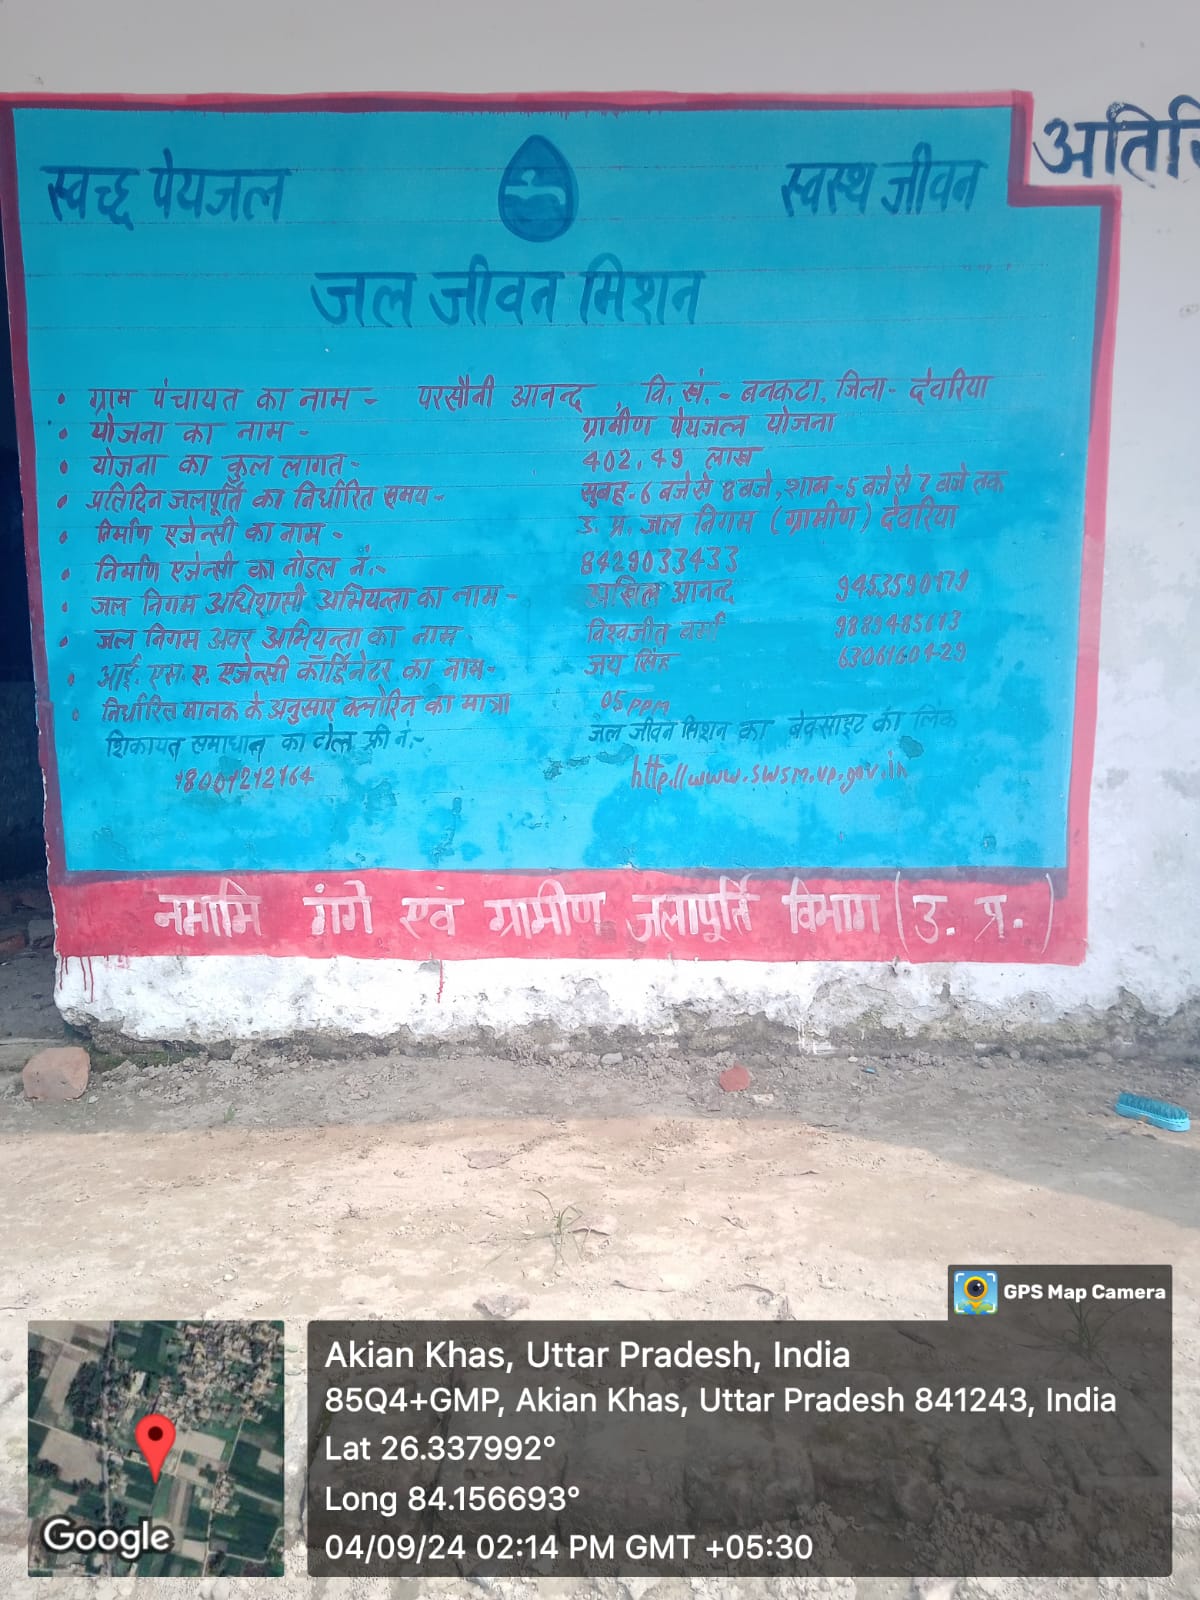 स्वच्छ पेयजल
स्वस्थ जीवन
अतिरि
जल जीवन मिशन
• ग्राम पंचायत का नाम - परसौनी आनन्द , वि. खं. - बनकटा, जिला - देवरिया
• योजना का नाम - ग्रामीण पेयजल योजना
• योजना का कुल लागत - 402.49 लाख
• प्रतिदिन जलपूर्ति का निर्धारित समय - सुबह - 6 बजे से 8 बजे, शाम - 5 बजे से 7 बजे तक
• निर्माण एजेन्सी का नाम - उ. प्र. जल निगम (ग्रामीण) देवरिया
• निर्माण एजेन्सी का नोडल नं. - 8429033433
• जल निगम अधिशासी अभियन्ता का नाम - अखिल आनन्द
• जल निगम अवर अभियन्ता का नाम - विश्वजीत वर्मा
• आई. एस. ए. एजेन्सी कॉर्डिनेटर का नाम - जय सिंह
• निर्धारित मानक के अनुसार क्लोरिन का मात्रा 05 PPM
शिकायत समाधान का टोल फ्री नं. - जल जीवन मिशन का बेवसाइट का लिंक
18001212164 http://www.swsm.up.gov.in
नमामि गंगे एवं ग्रामीण जलापूर्ति विभाग (उ. प्र.)
GPS Map Camera
Akian Khas, Uttar Pradesh, India
85Q4+GMP, Akian Khas, Uttar Pradesh 841243, India
Lat 26.337992°
Long 84.156693°
04/09/24 02:14 PM GMT +05:30
Google